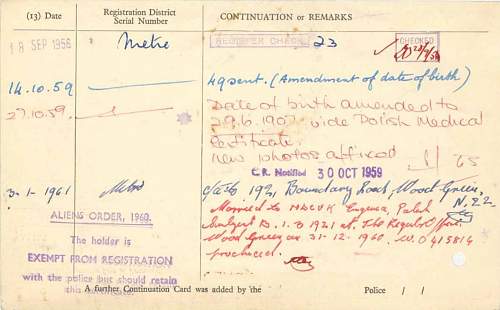 (13) Date
Registration District
Serial Number
CONTINUATION or REMARKS
18 SEP 1956
Metro
REGISTER CHECKED
23
CHECKED
14.10.59
49 sent. (Amendment of date of birth)
27.10.59.
Date of birth amended to
29.6.1907 vide Polish Medical
Certificate.
new photos affixed
65
C.R. Notified 30 OCT 1959
3-1-1961
Metro
192, Boundary Road, Wood Green,
N.22
ALIENS ORDER, 1960.
The holder is
EXEMPT FROM REGISTRATION
with the police but should retain
this certificate.
Married to
Polish
Subject B. 1.3.1921 at The Register Office,
Wood Green on 31-12-1960.
produced.
A further Continuation Card was added by the
Police / /